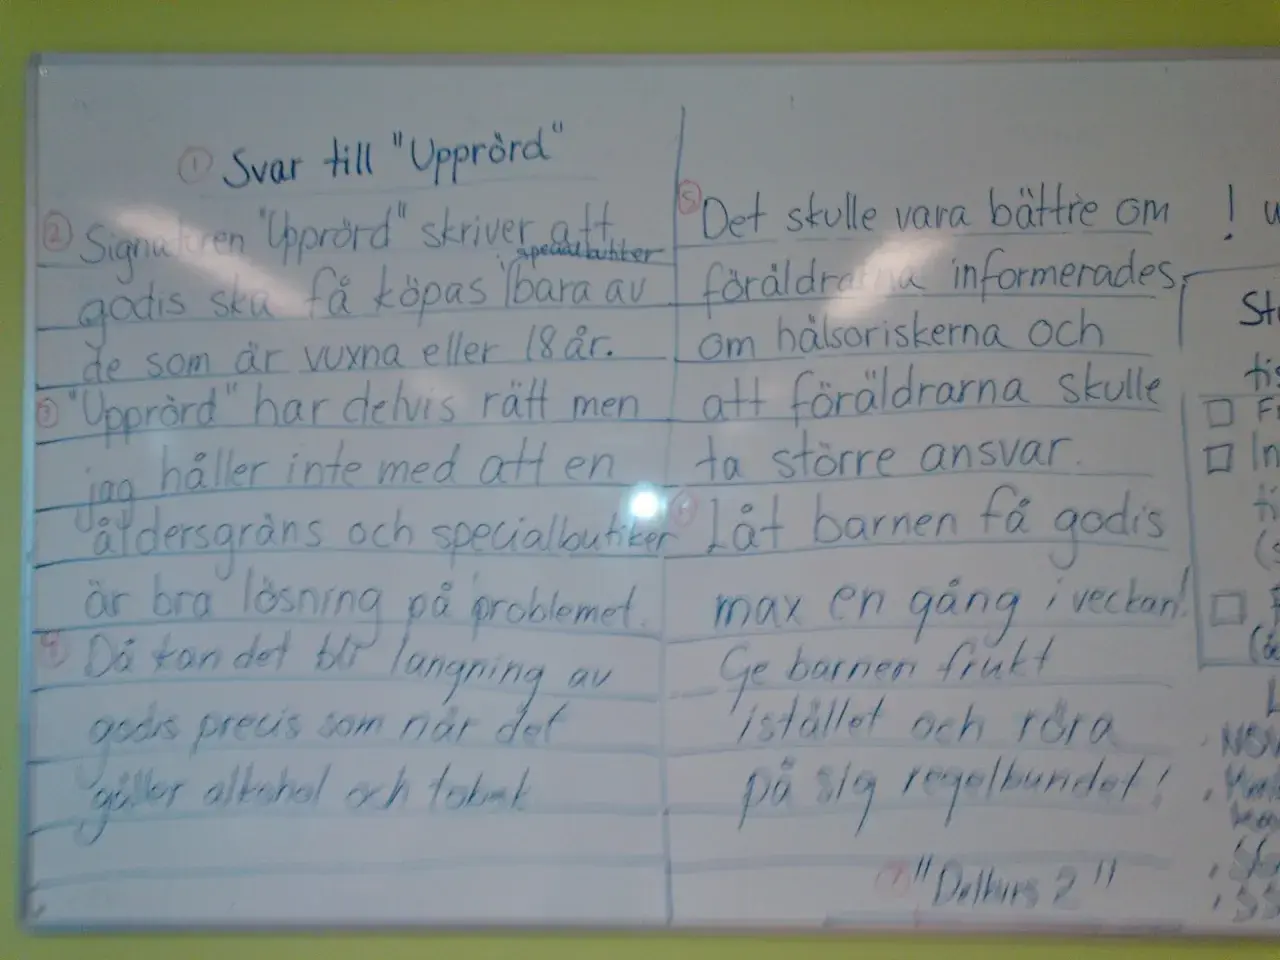 ① Svar till "Upprörd"
② Signaturen "Upprörd" skriver att
specialbutiker
godis ska få köpas i bara av
de som är vuxna eller 18 år.
③ "Upprörd" har delvis rätt men
jag håller inte med att en
åldersgräns och specialbutiker
är bra lösning på problemet.
④ Då kan det bli langning av
godis precis som når det
gäller alkohol och tobak
⑤ Det skulle vara bättre om
föräldrarna informerades
om hälsoriskerna och
att föräldrarna skulle
ta större ansvar.
⑥ Låt barnen få godis
max en gång i veckan!
Ge barnen frukt
istället och röra
på sig regelbundet!
⑦ "Delkurs 2"
!